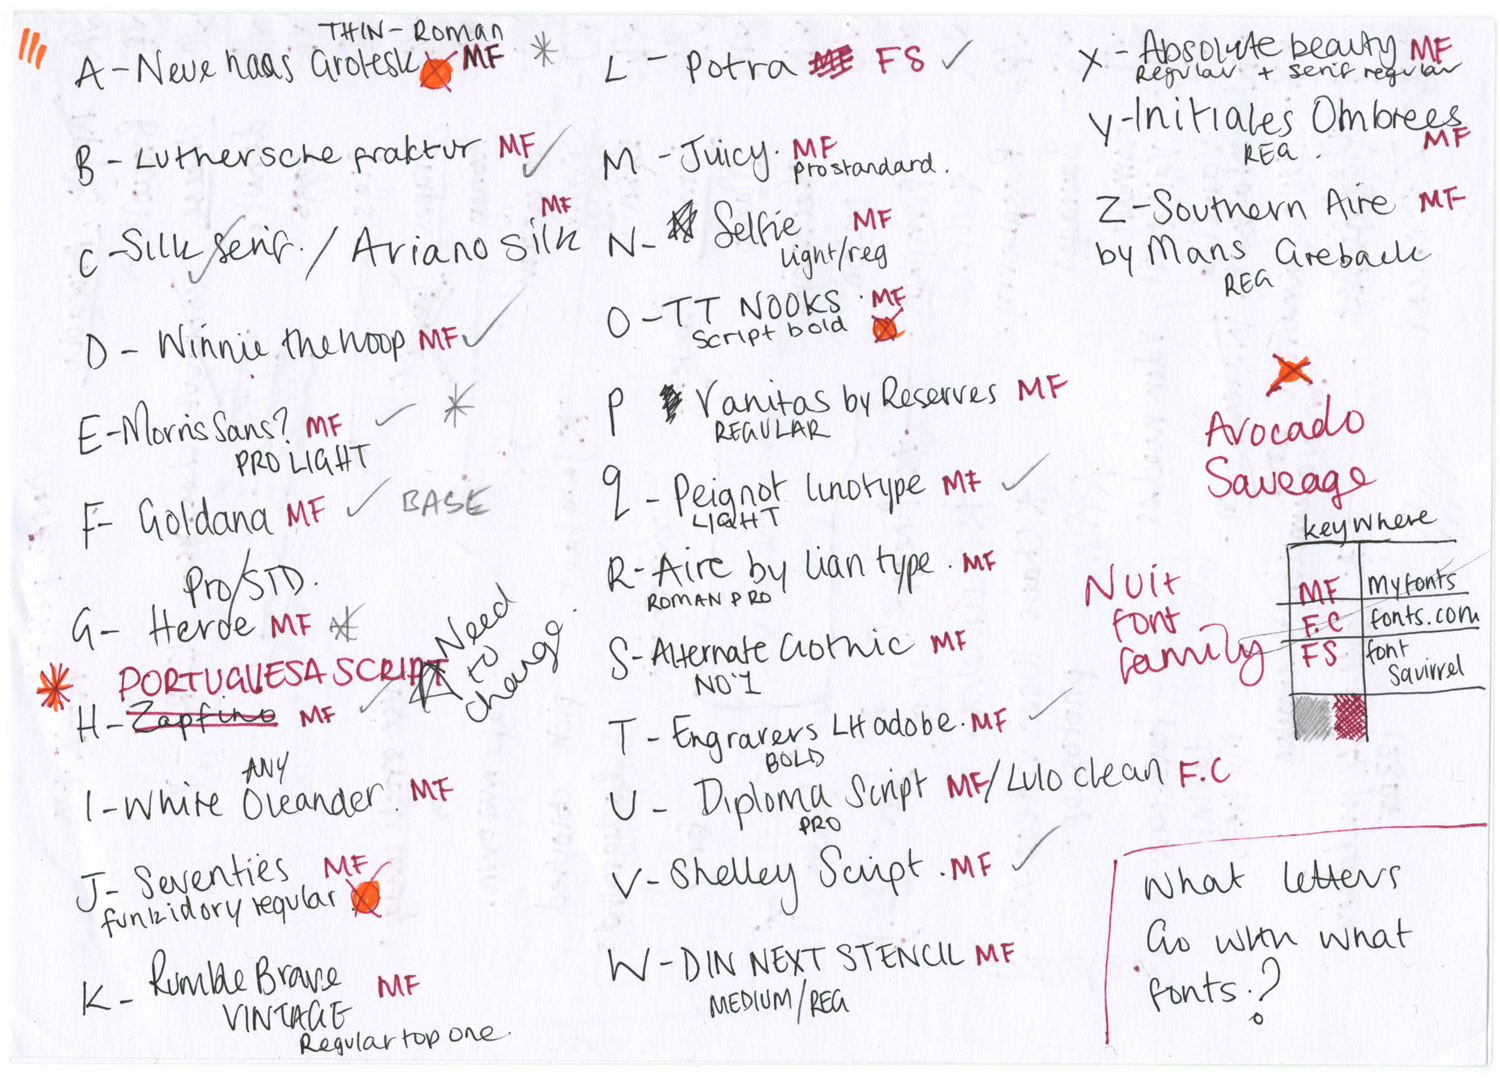 THIN - Roman
A - Neue haas Grotesk MF
B - Luthersche fraktur MF
MF
C - Silk Serif. / Ariano Silk
D - Winnie the hoop MF
E - Morris Sans? MF
PRO LIGHT
F - Goldana MF BASE
Pro/STD.
G - Heroe MF
Need to change.
PORTUGUESA SCRIPT
H - Zapfino MF
ANY
I - White Oleander MF
J - Seventies MF
funkidory regular
K - Rumble Brave MF
VINTAGE
Regular top one.
L - Potra MF FS
M - Juicy. MF
pro standard.
N - Selfie MF
light/reg
O - TT NOOKS MF
script bold
P Vanitas by Reserves MF
REGULAR
Q - Peignot linotype MF
LIGHT
R - Aire by lian type. MF
ROMAN PRO
S - Alternate Gothic MF
NO'1
T - Engravers LH adobe. MF
BOLD
U - Diploma Script MF / Lulo clean F.C
PRO
V - Shelley Script. MF
W - DIN NEXT STENCIL MF
MEDIUM/REG
X - Absolute beauty MF
Regular + serif regular
Y - Initiales Ombrees
REG. MF
Z - Southern Aire MF
by Mans Greback
REG
Avocado
Saveage
key where
MF myfonts
F.C fonts.com
FS font
Squirrel
Nuit
font
family
What letters
Go with what
fonts.?